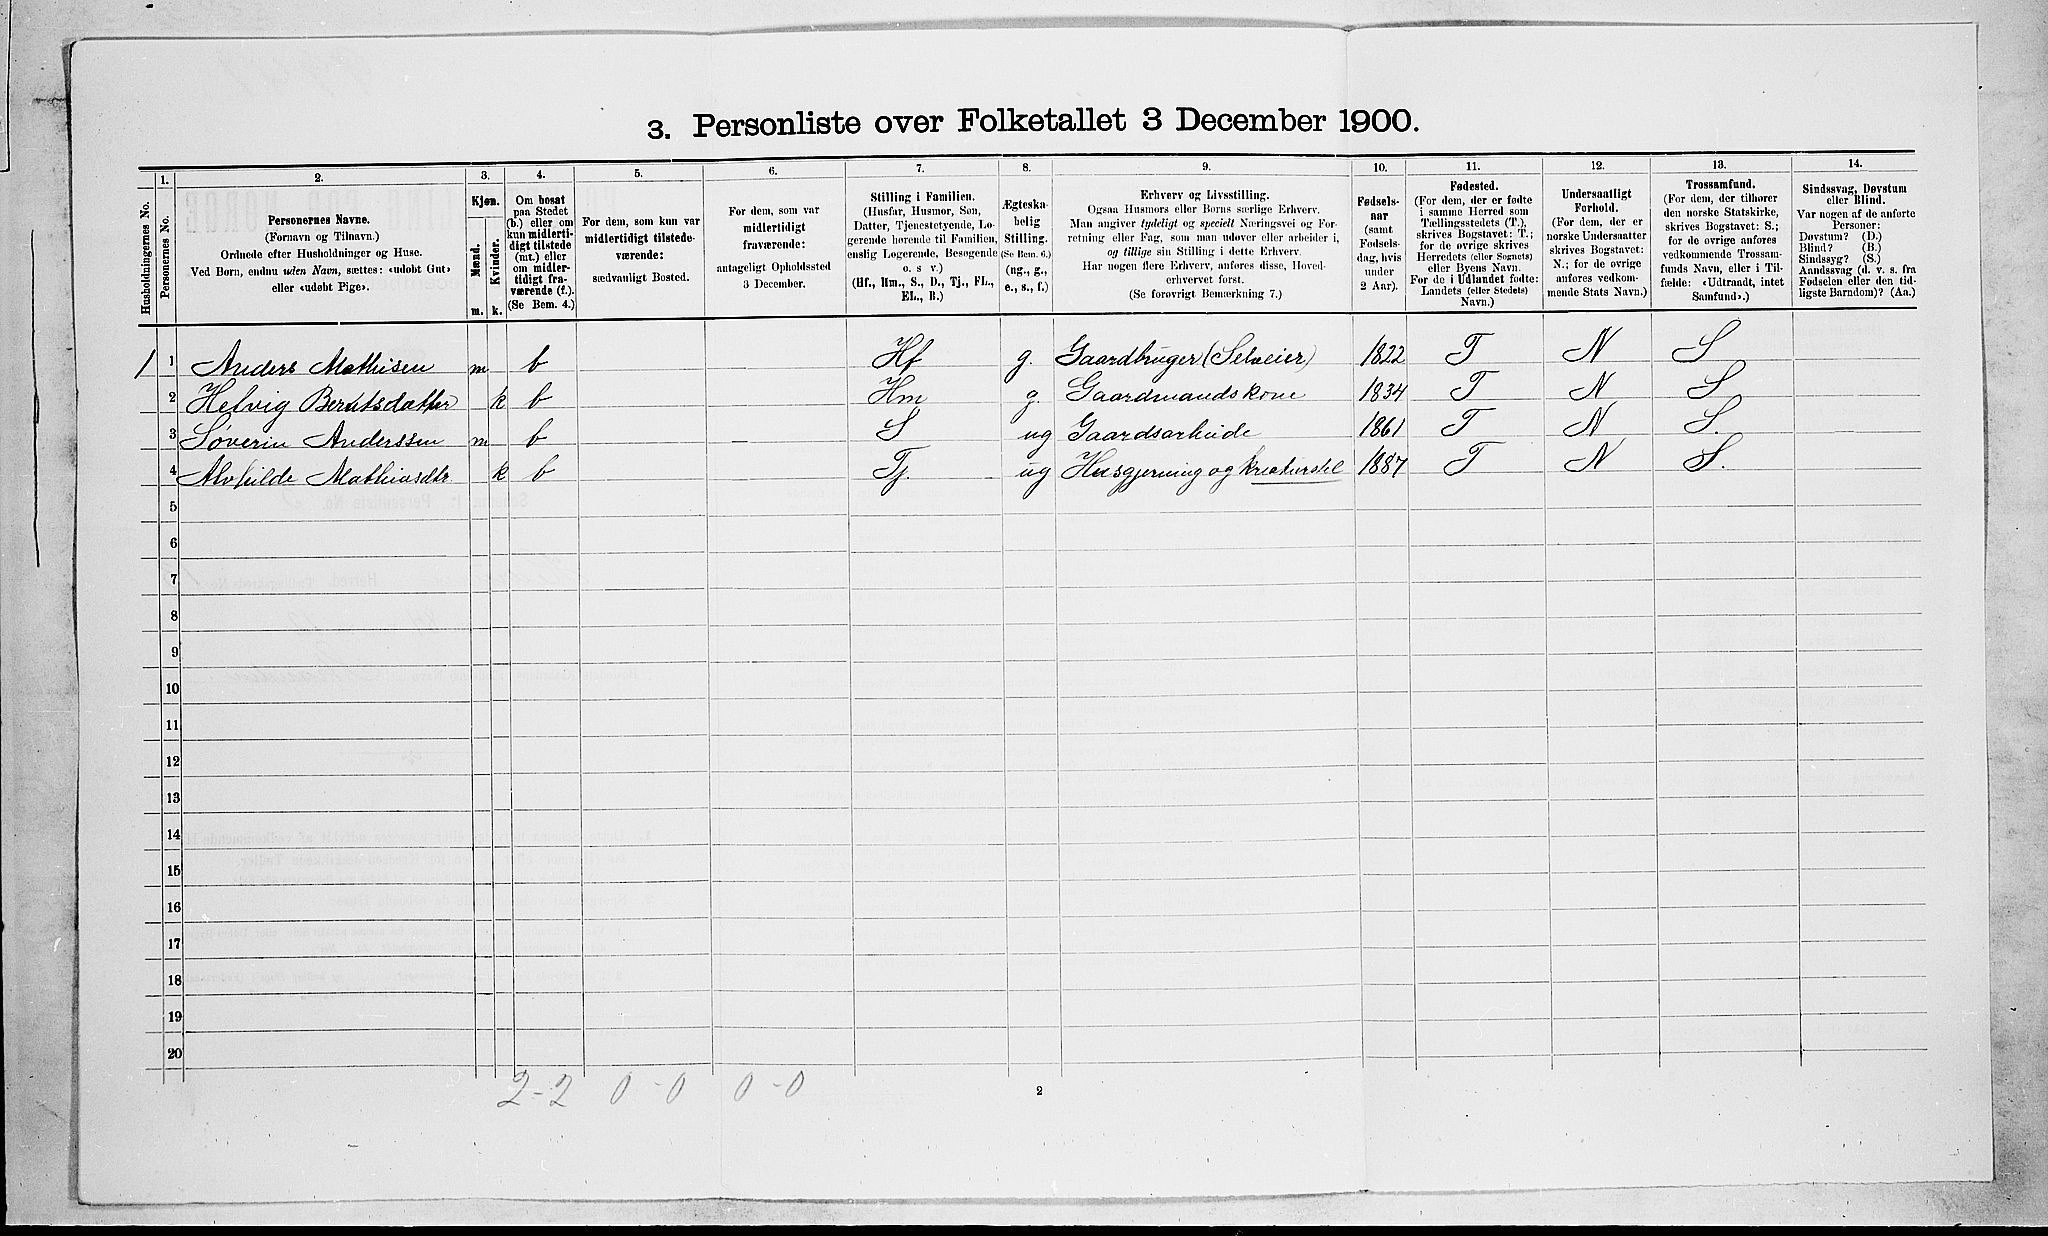 3. Personliste over Folketallet 3 December 1900.
Husholdningernes No.
1.
Personernes No.
2.
Personernes Navne.
(Fornavn og Tilnavn.)
Ordnede efter Husholdninger og Huse.
Ved Børn, endnu uden Navn, sættes: «udøbt Gut»
eller «udøbt Pige».
3.
Kjøn.
Mænd.
Kvinder.
m. k.
4.
Om bosat
paa Stedet
(b.) eller om
kun midlerti-
digt tilstede
(mt.) eller
om midler-
tidigt fra-
værende (f.).
(Se Bem. 4.)
5.
For dem, som kun var
midlertidigt tilstede-
værende:
sædvanligt Bosted.
6.
For dem, som var
midlertidigt
fraværende:
antageligt Opholdssted
3 December.
7.
Stilling i Familien.
(Husfar, Husmor, Søn,
Datter, Tjenestetyende, Lo-
gerende hørende til Familien,
enslig Logerende, Besøgende
o. s v.)
(Hf., Hm., S., D., Tj., FL.,
EL., B.)
8.
Ægteska-
belig
Stilling.
(Se Bem. 6.)
(ug., g.,
e., s., f.)
9.
Erhverv og Livsstilling.
Ogsaa Husmors eller Børns særlige Erhverv.
Man angiver tydeligt og specielt Næringsvei og For-
retning eller Fag, som man udøver eller arbeider i,
og tillige sin Stilling i dette Erhverv.
Har nogen flere Erhverv, anføres disse, Hoved-
erhvervet først.
(Se forøvrigt Bemærkning 7.)
10.
Fødsels-
aar
(samt
Fødsels-
dag, hvis
under
2 Aar).
11.
Fødested.
(For dem, der er fødte
i samme Herred som
Tællingsstedets (T.),
skrives Bogstavet: T.;
for de øvrige skrives
Herredets (eller Sognets)
eller Byens Navn.
For de i Udlandet fødte:
Landets (eller Stedets)
Navn.)
12.
Undersaatligt
Forhold.
(For dem, der er
norske Undersaatter
skrives Bogstavet:
N.; for de øvrige
anføres vedkom-
mende Stats Navn.)
13.
Trossamfund.
(For dem, der tilhører
den norske Statskirke,
skrives Bogstavet: S.;
for de øvrige anføres
vedkommende Trossam-
funds Navn, eller i Til-
fælde: «Udtraadt, intet
Samfund».)
14.
Sindssvag, Døvstum
eller Blind.
Var nogen af de anførte
Personer:
Døvstum? (D.)
Blind? (B.)
Sindssyg? (S.)
Aandssvag (d. v. s. fra
Fødselen eller den tid-
ligste Barndom)? (Aa.)
1 1 Anders Mathisen m b – Hf g. Gaardbruger (Selveier) 1822 T N S
2 Helvig Berntsdatter k b – Hm g. Gaardmandskone 1834 T N S.
3 Søverin Anderssen m b – S ug Gaardsarbeide 1861 T N S.
4 Alvhilde Mathiasdtr. k b Tj. ug Husgjerning og kreaturstel 1887 T N S.
5
6
7
8
9
10
11
12
13
14
15
16
17
18
19
20
2-2 0-0 0-0
2